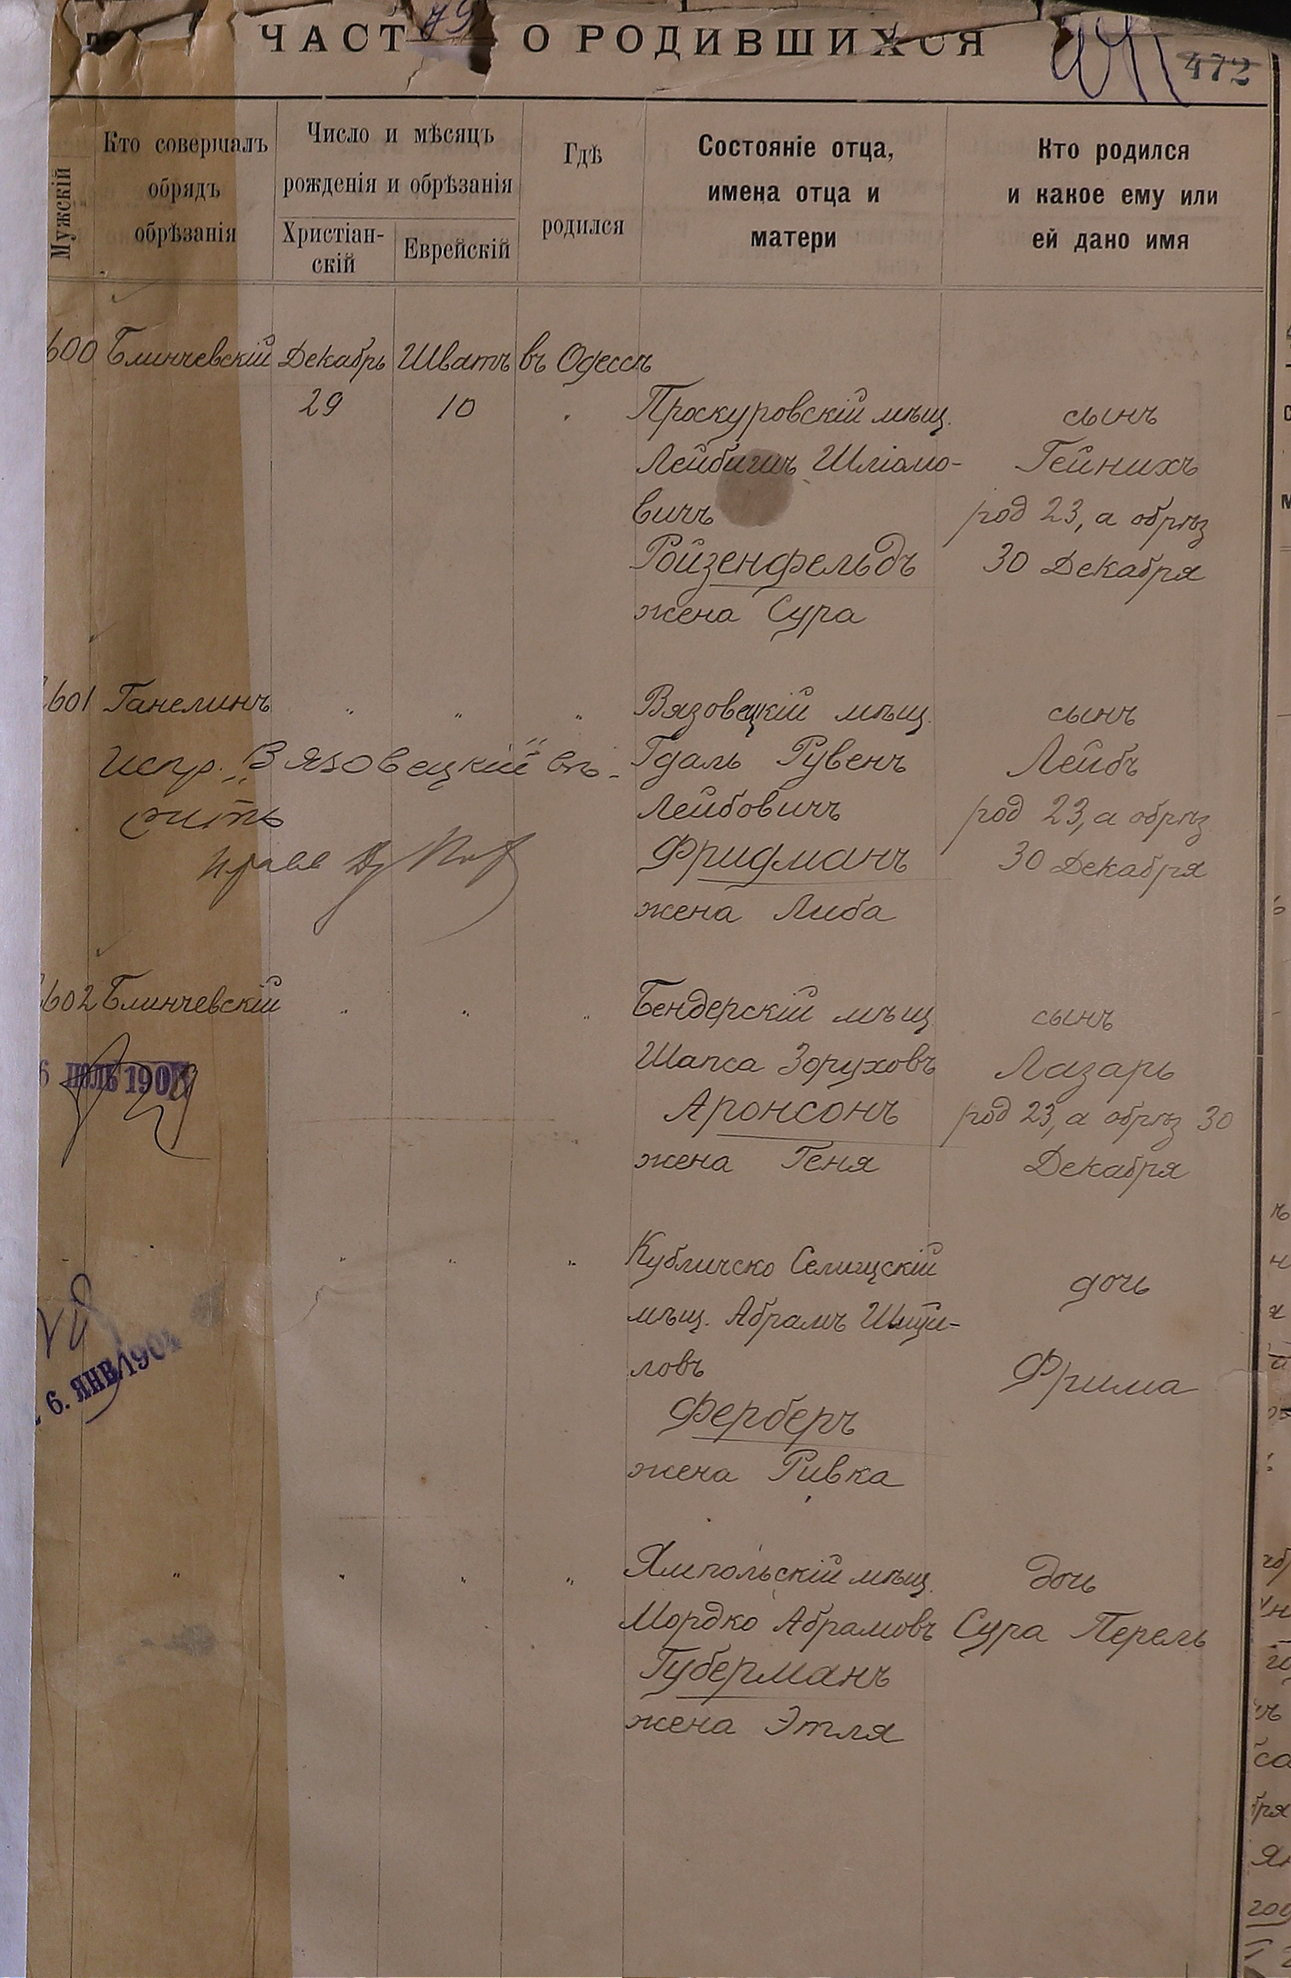 ЧАСТ О РОДИВШИХСЯ
472
Мужскій
Кто совершалъ
обрядъ
обрѣзанія
Число и мѣсяцъ
рожденія и обрѣзанія
Христіан-
скій
Еврейскій
Гдѣ
родился
Состояніе отца,
имена отца и
матери
Кто родился
и какое ему или
ей дано имя
600 Блинчевскій Декабрь Шватъ въ Одессѣ
29 10
Проскуровскій мѣщ. сынъ
Лейбишъ Шліомо- Гейнихъ
вичъ род 23, а обрѣз
Ройзенфельдъ 30 Декабря
жена Сура
601 Ганелинъ " " " Вязовецкій мѣщ. сынъ
Испр. "Вязовецкій" вѣ- Гдаль Рувенъ Лейбъ
рить Лейбовичъ род 23, а обрѣз
Фридманъ 30 Декабря
жена Либа
602 Блинчевскій " " " Бендерскій мѣщ сынъ
6 ІЮЛЬ 190 Шапса Зоруховъ Лазарь
Аронсонъ род 23, а обрѣз 30
жена Геня Декабря
" " " Кубличско Селищскій дочь
мѣщ. Абрамъ
ловъ Фрима
6. ЯНВ 1904
Ферберъ
жена Ривка
" " " " Ямпольскій мѣщ. дочь
Мордко Абрамовъ Сура Перель
Губерманъ
жена Этля